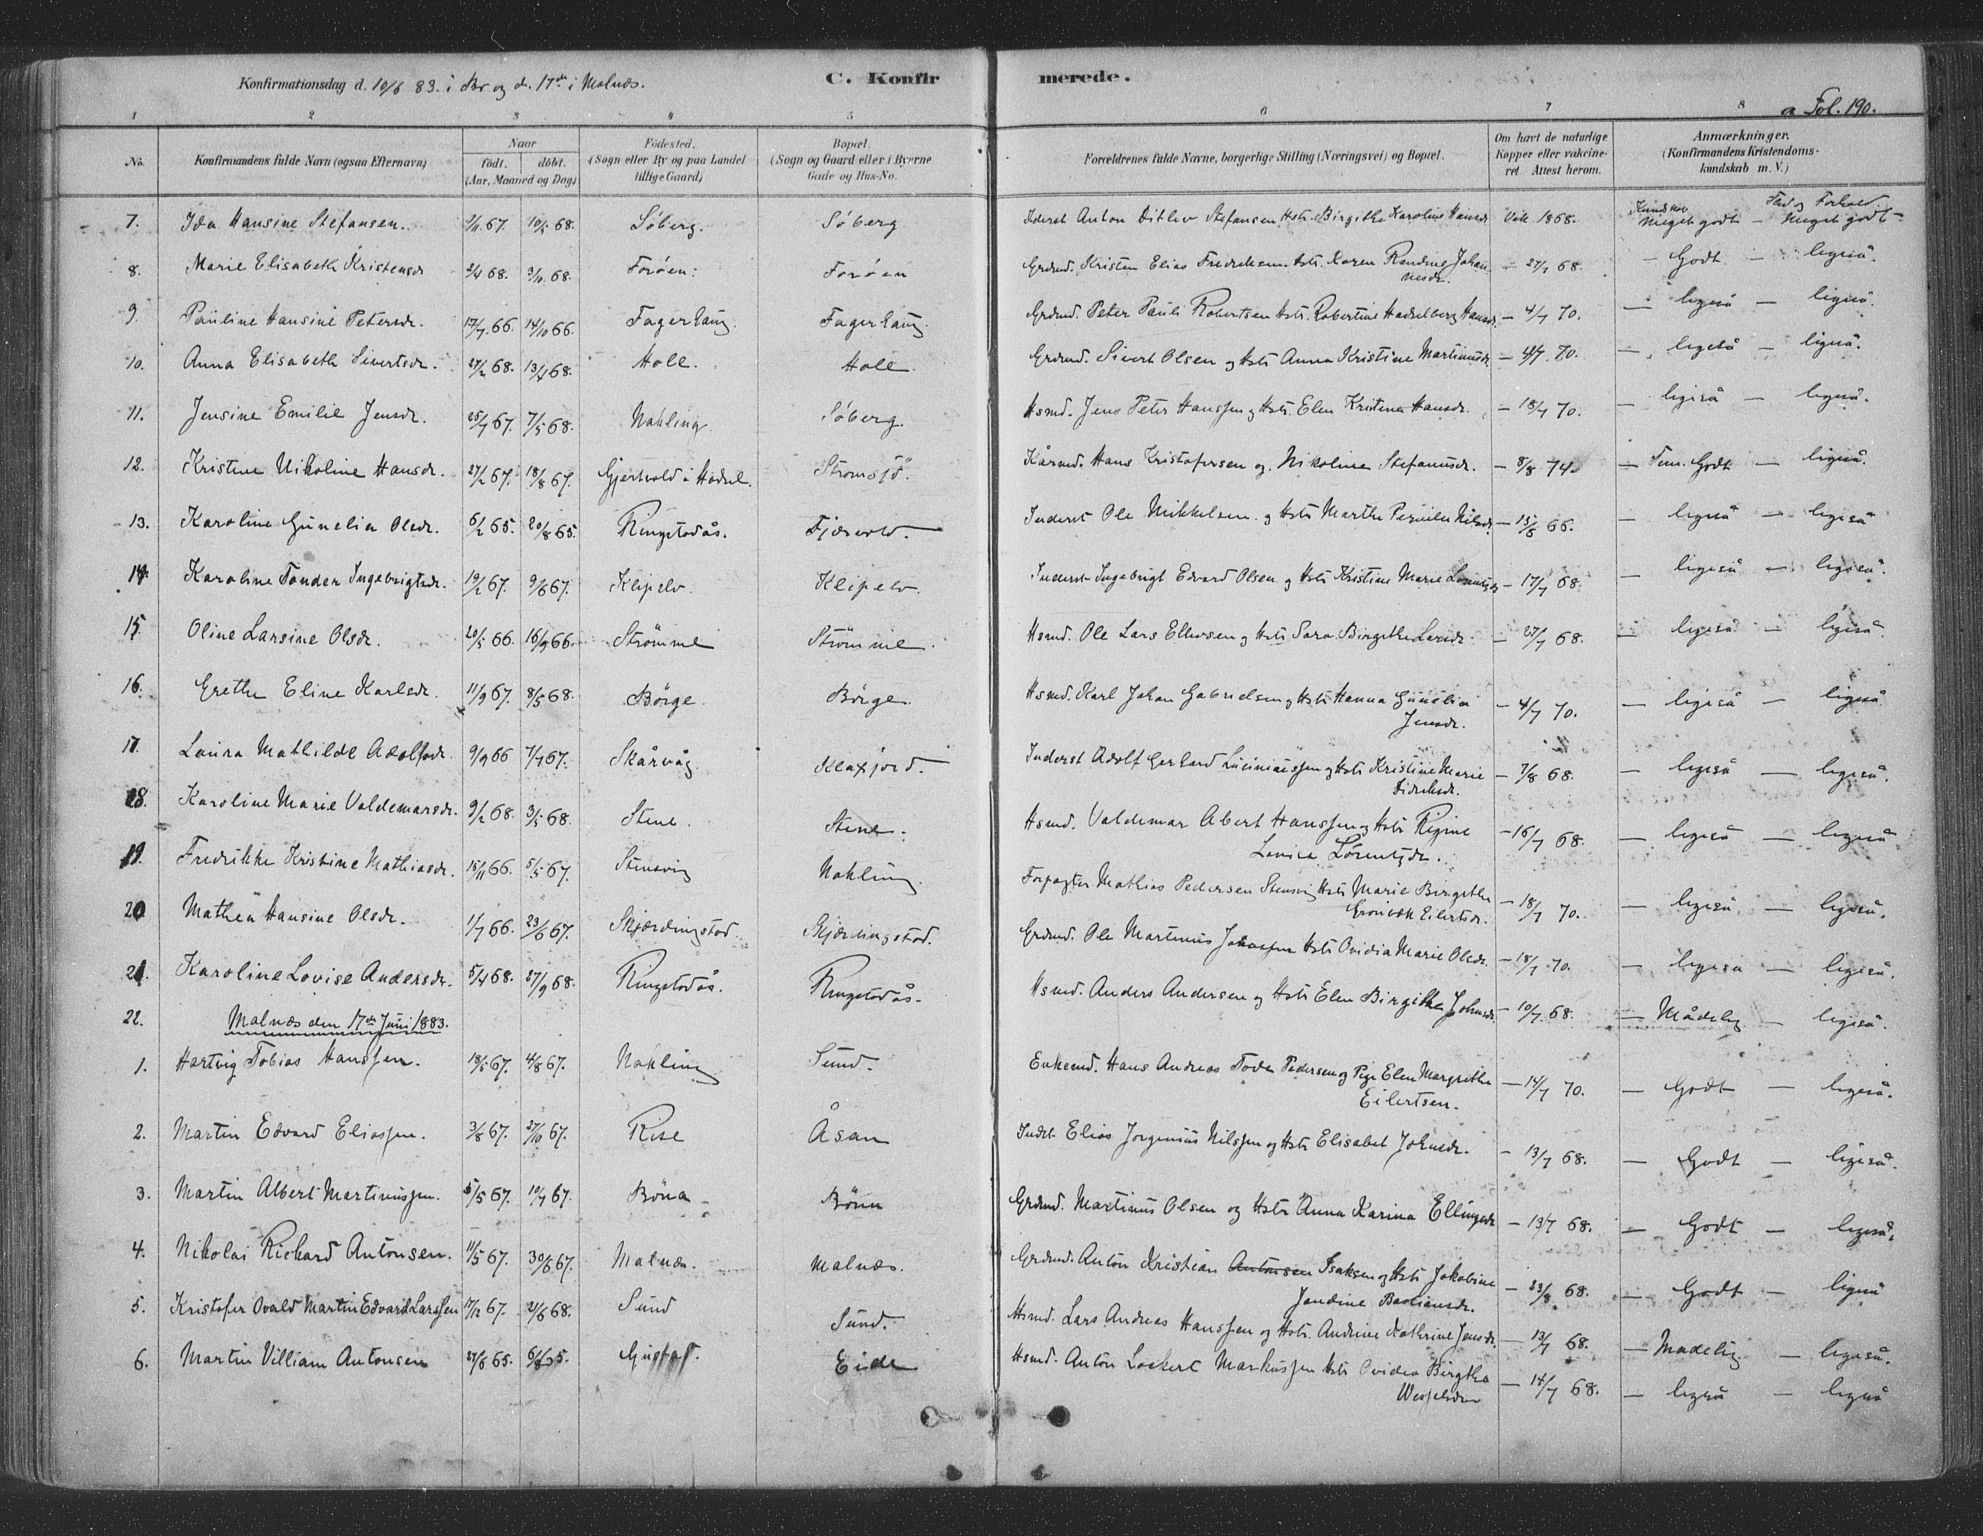 Konfirmationsdag d. 10/6 83. i Bø og d. 17de i Malnæs.
C. Konfirmerede.
a Fol. 190.
1 2 3 4 5 6 7 8
No.
Konfirmandens fulde Navn (ogsaa Efternavn)
Naar
født. døbt.
(Aar, Maaned og Dag)
Fødested.
(Sogn eller By og paa Landet
tillige Gaard)
Bopæl.
(Sogn og Gaard eller i Byerne
Gade og Hus-No.
Forældrenes fulde Navne, borgerlige Stilling (Næringsvei) og Bopæl.
Om havt de naturlige
Kopper eller vakcine-
ret. Attest herom.
Anmærkninger.
(Konfirmandens Kristendoms-
kundskab m. V.)
Kundskab Flid og Forhold
7. Ida Hansine Stefansen. 67. 68. Søberg. Søberg Inderst Anton Ditlev Stefansen Hstr. Birgithe Karoline Hansdr. Vak. 1868. Meget godt — Meget godt
8. Marie Elisabeth Kristensdr 2/4 68. 68. Forøen: Forøen Grdmd. Kristen Elias Fredriksen Hstr. Karen Randine Johan-
nesdr. — 27/7 68. — Godt — ligeså.
9. Pauline Hansine Petersdr. 17/7 66. 14/10 66. Fagerhaug. Fagerhaug. Grdmd. Peter Pauli Robertsen Hstr. Robertine Hadselberg Hansdr. — 4/7 70. — ligeså — ligeså.
10. Anna Elisabeth Sivertsdr. 27/2 68. 13/4 68. Holl. Holl. Grdmd. Sivert Olsen og Hstr Anna Kristine Martinusdr. — 4/7 70. — ligeså — ligeså.
11. Jensine Emilie Jensdr. 25/7 67. 7/5 68. Nøkling Søberg. Hsmd. Jens Peter Hanssen og Hstr. Elen Kristena Hansdr. — 18/7 70. — ligeså — ligeså.
12. Kristine Nikoline Hansdr. 27/2 67. 18/8 67. Gjertvold i Hadsel. Strømsjö. Kårmd. Hans Kristofersen og Nikoline Stefanusdr. — 8/8 74. — Tem. Godt — ligeså.
13. Karoline Gunelia Olsdr. 6/2 65. 20/8 65. Ringstadås. Fjærvold. Inderst Ole Mikkelsen og Hstr Marthe Pernille Nilsdr. — 66. — ligeså — ligeså
14. Karoline Tander Ingebrigtsdr. 19/2 67. 9/6 67. Klipelv. Klipelv. Inderst Ingebrigt Edvard Olsen og Hstr Kristine Marie Lorentsdr — 17/7 68. — ligeså — ligeså.
15. Oline Larsine Olsdr. 20/5 66. 16/9 66. Strömme Strömme. Hsmd. Ole Lars Ellevsen og Hstr Sara Birgithe Larsdr. — 27/7 68. — ligeså — ligeså.
16. Grethe Eline Karlsdr. 11/9 67. 8/5 68. Börge. Börge. Hsmd. Karl Johan Gabrielsen og Hstr Hanna Gunelia
Jensdr. — 4/7 70. — ligeså — ligeså
17. Laura Mathilde Adolfsdr. 9/9 66 7/7 67. Skårvåg. Klaxjord. Inderst Adolf Gerhard Luciniussen og Hstr Kristine Marie
Didriksdr. — 7/8 68. — ligeså — ligeså.
18. Karoline Marie Valdemarsdr. 9/2 68. 3/5 68. Stene. Stene. Hsmd. Valdemar Abert Hanssen og Hstr Regine
Lovise Lorentzdr. — 16/7 68. — ligeså — ligeså
19. Fredrikke Kristine Mathiasdr. 15/11 66. 5/5 67. Stensvig Nøkling. Forpagter Mathias Pedersen Stensvig Hstr Marie Birgithe
Eilertsdr. — 18/7 70. — ligeså — ligeså.
20 Mathea Hansine Olsdr. 1/7 66. 23/6 67. Skjærdingstad. Skjærdingstad. Grdmd. Ole Martinus Johansen Hstr Ovidia Marie Olsdr. — 18/7 70. — ligeså — ligeså.
21. Karoline Lovise Andersdr. 5/4 68. 27/9 68. Ringstadås. Ringstadås. Hsmd. Anders Andersen og Hstr Elen Birgithe Johnsdr. — 10/7 68. — Mådelig — ligeså.
22. Malnæs den 17de Juni 1883.
1. Hartvig Tobias Hanssen. 18/5 67. 4/8 67. Nøkling Sund. Enkemd. Hans Andreas Pedersen og Pige Elen Margrethe
Eilertsen. — 14/7 70. — Godt — ligeså.
2. Martin Edvard Eliassen. 3/8 67. 27/10 67. Rise Åsan Indst. Elias Jørgenius Nilssen og Hstr Elisabet Johnsdr. — 13/7 68. — Godt — ligeså.
3. Martin Albert Martinussen. 5/5 67. 10/7 67. Böna Böna Grdmd. Martinus Olsen og Hstr Anna Karina Ellingsdr — 13/7 68. — Godt — ligeså.
4. Nikolai Rickard Antonsen. 11/5 67. 30/6 67. Malnæs. Malnæs. Grdmd. Anton Kristian Antonsen Isaksen og Hstr Jakobine
Jandine Bastiansdr. — 23/8 68. — Godt — ligeså
5. Kristofer Ovald Martin Edvard Larssen 17/12 67. 21/6 68. Sund Sund. Hsmd. Lars Andreas Hanssen og Hstr. Andrine Kathrine Jensdr. — 13/7 68. — Madelig — ligeså.
6. Martin Villiam Antonsen 27/6 65. Gustad. Eide Hsmd. Anton Lockert Markussen Hstr Ovidea Birgtha
Wesselsdr — 14/7 68. — ligeså — ligeså